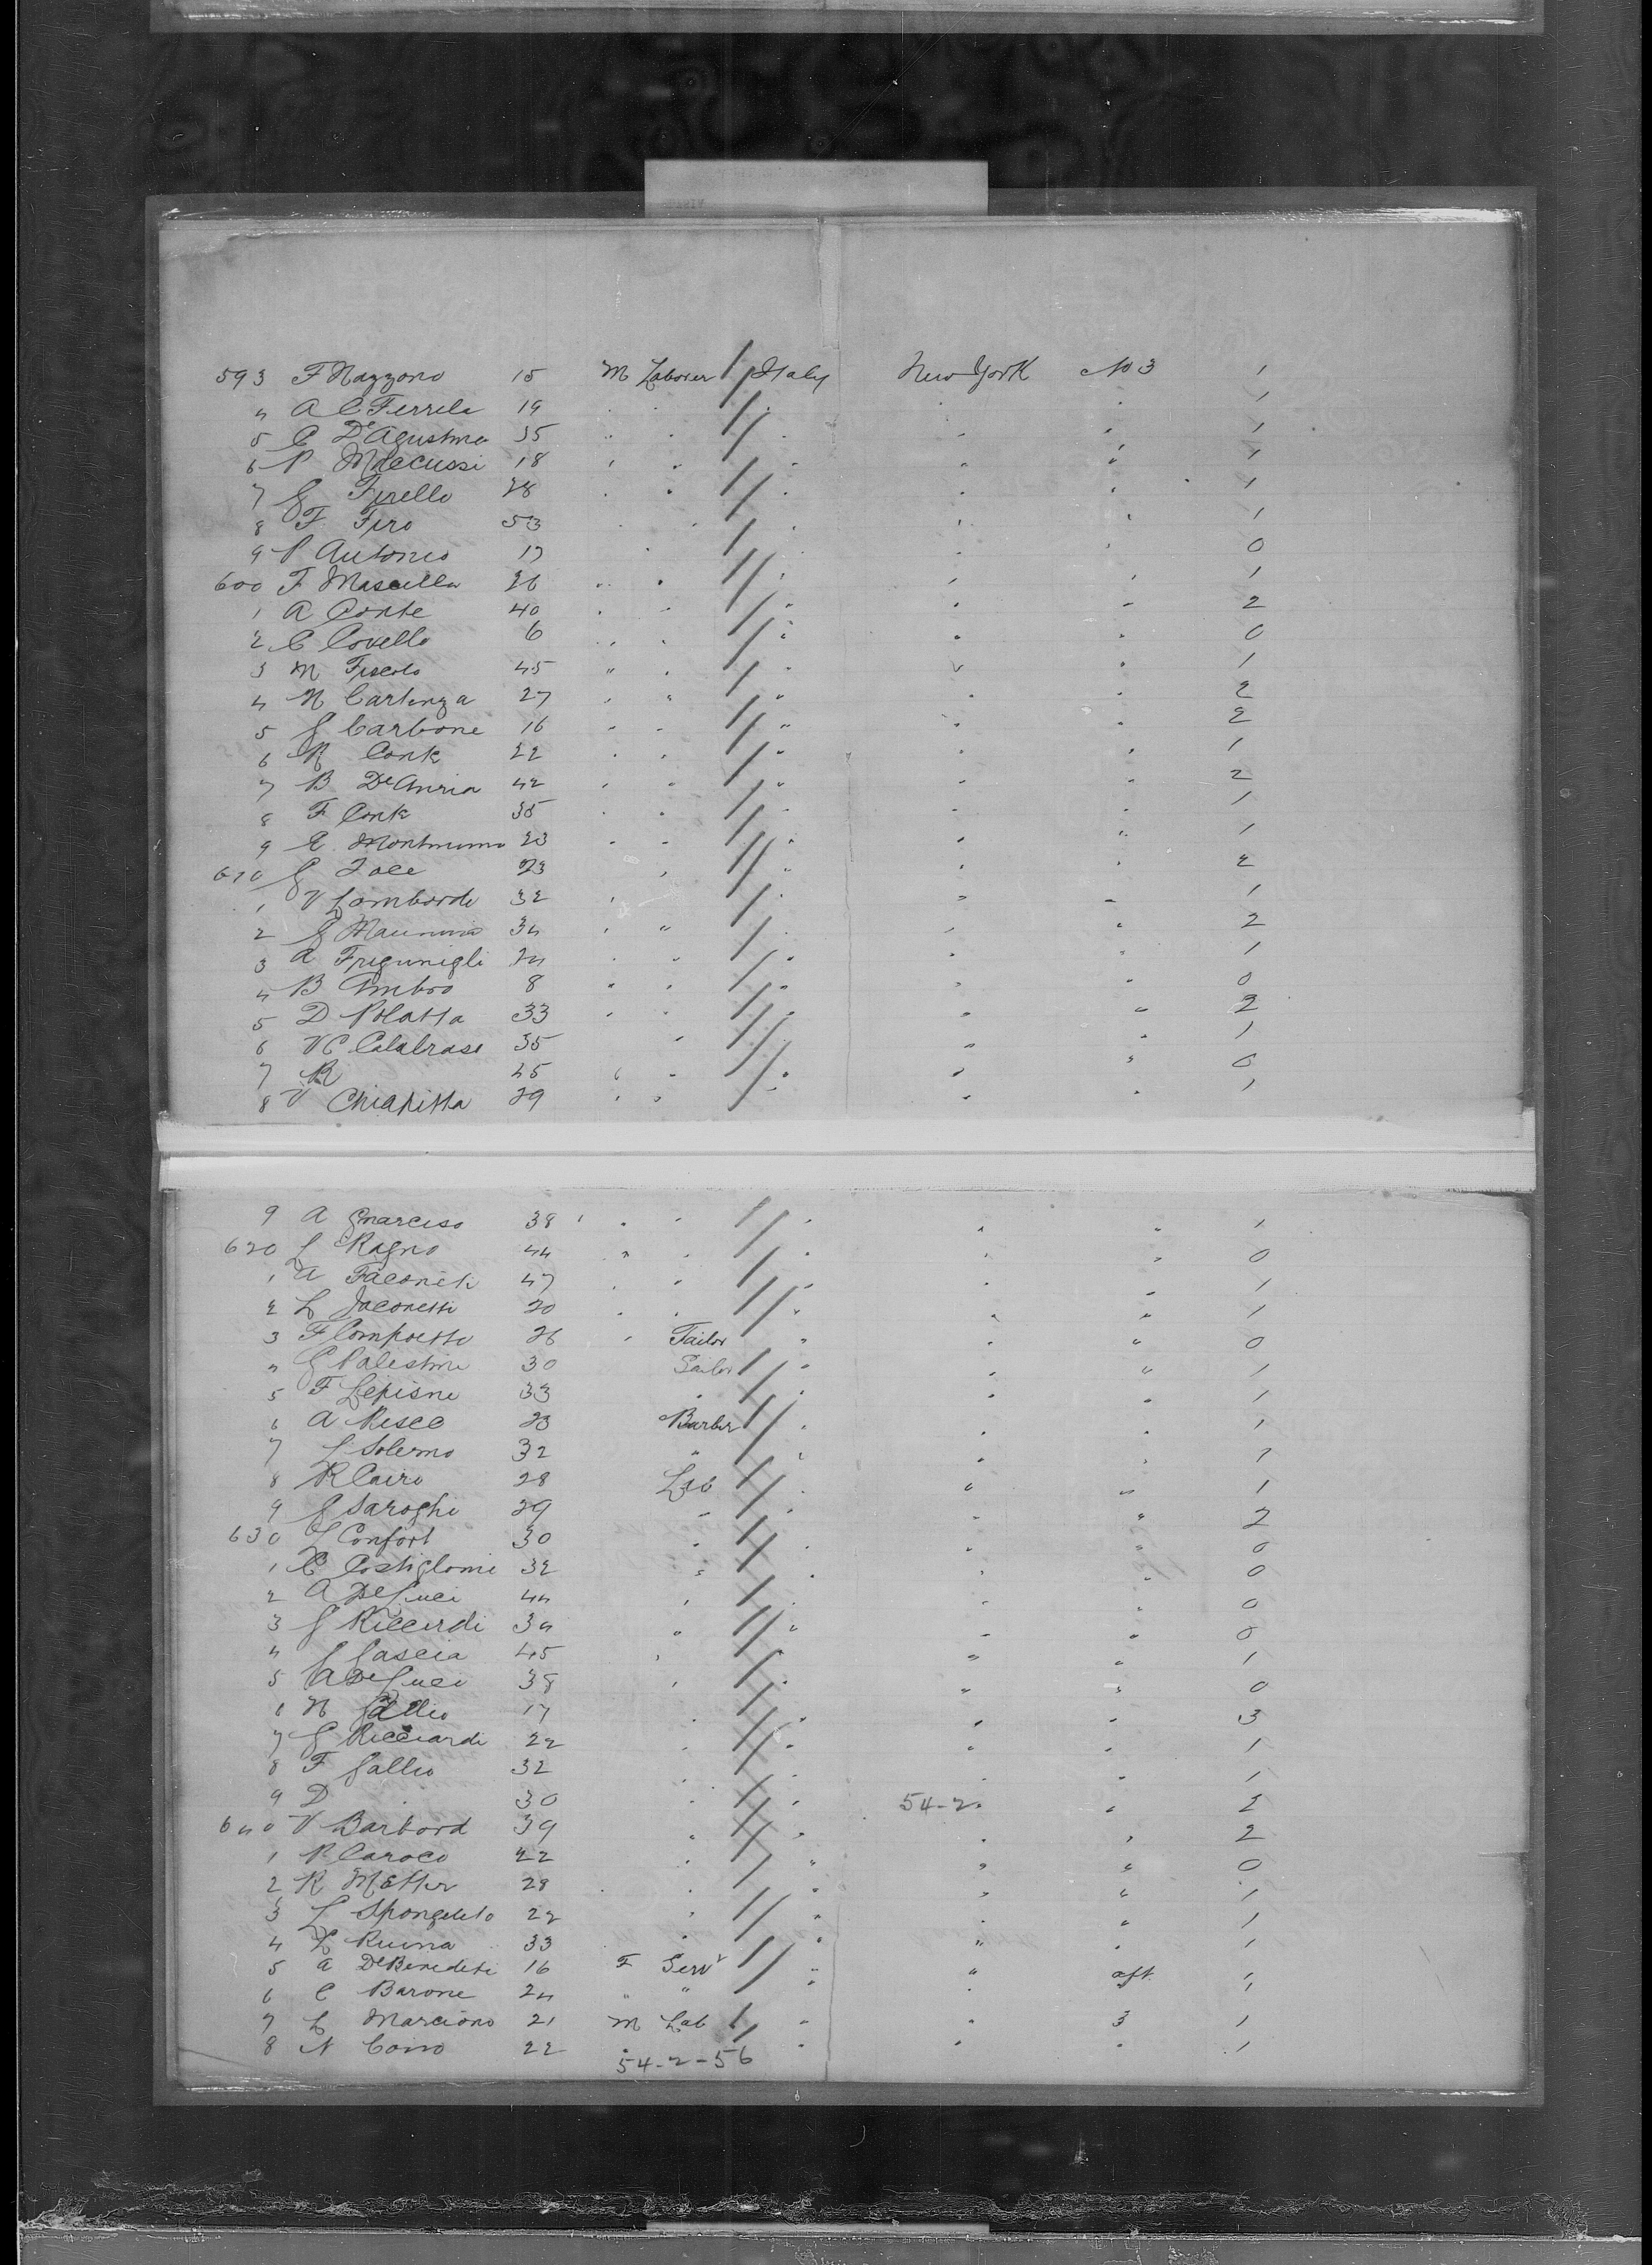 593 F Nazzono 15 M Laborer Italy New York No 3 1
4 A C Ferrela 19 " " " " " 1
5 C De Agustino 35 " " " " " 1
6 P Maecussi 18 " " " " " 1
7 G Firello 28 " " " " " 1
8 F Firo 53 " " " " " 1
9 P Antonio 17 " " " " 0
600 F Mascilla 26 " " " " " 1
1 A Conte 40 " " " " " 2
2 C Covello 6 " " " " " 0
3 M Fiscolo 45 " " " " " 1
4 N Cartenza 27 " " " " " 2
5 G Carbone 16 " " " " " 2
6 R Conte 22 " " " " " 1
7 B De Anria 42 " " " " " 2
8 F Conte 35 " " " " " 1
9 E 23 " " " " " 1
610 G Tocc 23 " " " " " 2
1 V Lombardi 32 " " " " 1
2 G 34 " " " " " 2
3 A Frigunigli 24 " " " " " 1
4 B Ambro 8 " " " " " 0
5 D Polatta 33 " " " " " 2
6 V C Calabrase 35 " " " " 1
7 R 45 " " " " " 0
8 V Chiapitta 29 " " " " " 1
9 A Gnarciso 38 " " " " " 1
620 L Ragno 44 " " " " " 0
1 A Faconeti 47 " " " " " 1
2 L Jaconetti 20 " " " " " 1
3 F Compoetto 26 " Tailor " " " 0
4 G Palestine 30 Sailor " " " 1
5 F Lepisne 33 " " " " 1
6 A Risco 23 Barber " " " 1
7 L Solerno 32 " " " " 1
8 R Cairo 28 Lab " " " 1
9 G Saroghi 29 " " " 2
630 L Confort 30 " " " " 0
1 C Costiglomi 32 " " " " 0
2 A De Luci 44 " " " " 0
3 G Riccirdi 34 " " " " 0
4 G Gascia 45 " " " 1
5 A De Luci 38 " " " " 0
6 N Gallio 17 " " " " 3
7 G Ricciardi 22 " " " " 1
8 F Gallio 32 " " " " 1
9 D " 30 " " 54-2 " " 2
640 V Barbord 39 " " " " 2
1 P Caroco 22 " " " " 0
2 R Matter 28 " " " " " 1
3 L Spongeleto 22 " " " " 1
4 L Ruina 33 " " " " 1
5 A De Benedeti 16 F Servt " " aft 1
6 C Barone 24 " " " " 1
7 L Marciono 21 M Lab " " 3 1
8 N Corro 22 " " " " 1
54-2-56